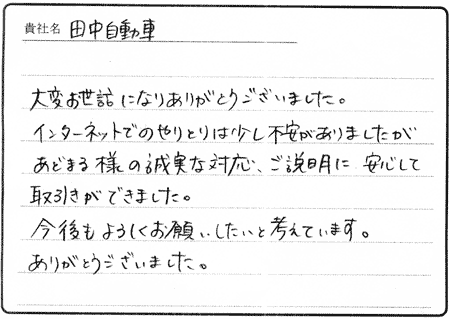 貴社名 田中自動車
大変お世話になりありがとうございました。
インターネットでのやりとりは少し不安がありましたが
あどまる様の誠実な対応、ご説明に安心して
取引きができました。
今後もよろしくお願いしたいと考えています。
ありがとうございました。